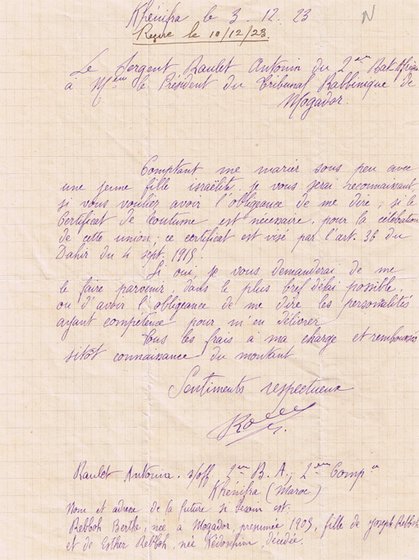 Khénifra le 3. 12. 23
Reçue le 10/12/23.
Le Sergent Raulet Antonin du 2ème Bat.
à Mr le Président du Tribunal Rabbinique de
Mogador.
Comptant me marier sous peu avec
une jeune fille israëlite, je vous serai reconnaissant
si vous voulier avoir l'obligeance de me dire, si le
Certificat de Coutume est nécessaire, pour la célébration
de cette union; ce certificat est visé par l'art. 36 du
Dahir du 4 Sept. 1915
Si oui, je vous demanderai de me
le faire parvenir, dans le plus bref délai possible,
ou d'avoir l'obligeance de me dire les personalités
ayant compétence pour m'en délivrer
Tous les frais à ma charge et remboursés
sitôt connaissance du montant
Sentiments respectueux
Raulet Antonin. B. A., 2ème Compie
Khénifra (Maroc)
Nom et adresse de la future si besoin est.
Rebboh Berthe, née à Mogador, presumée 1905, fille de Joseph Rebboh
et de Esther Rebboh, née décédée.